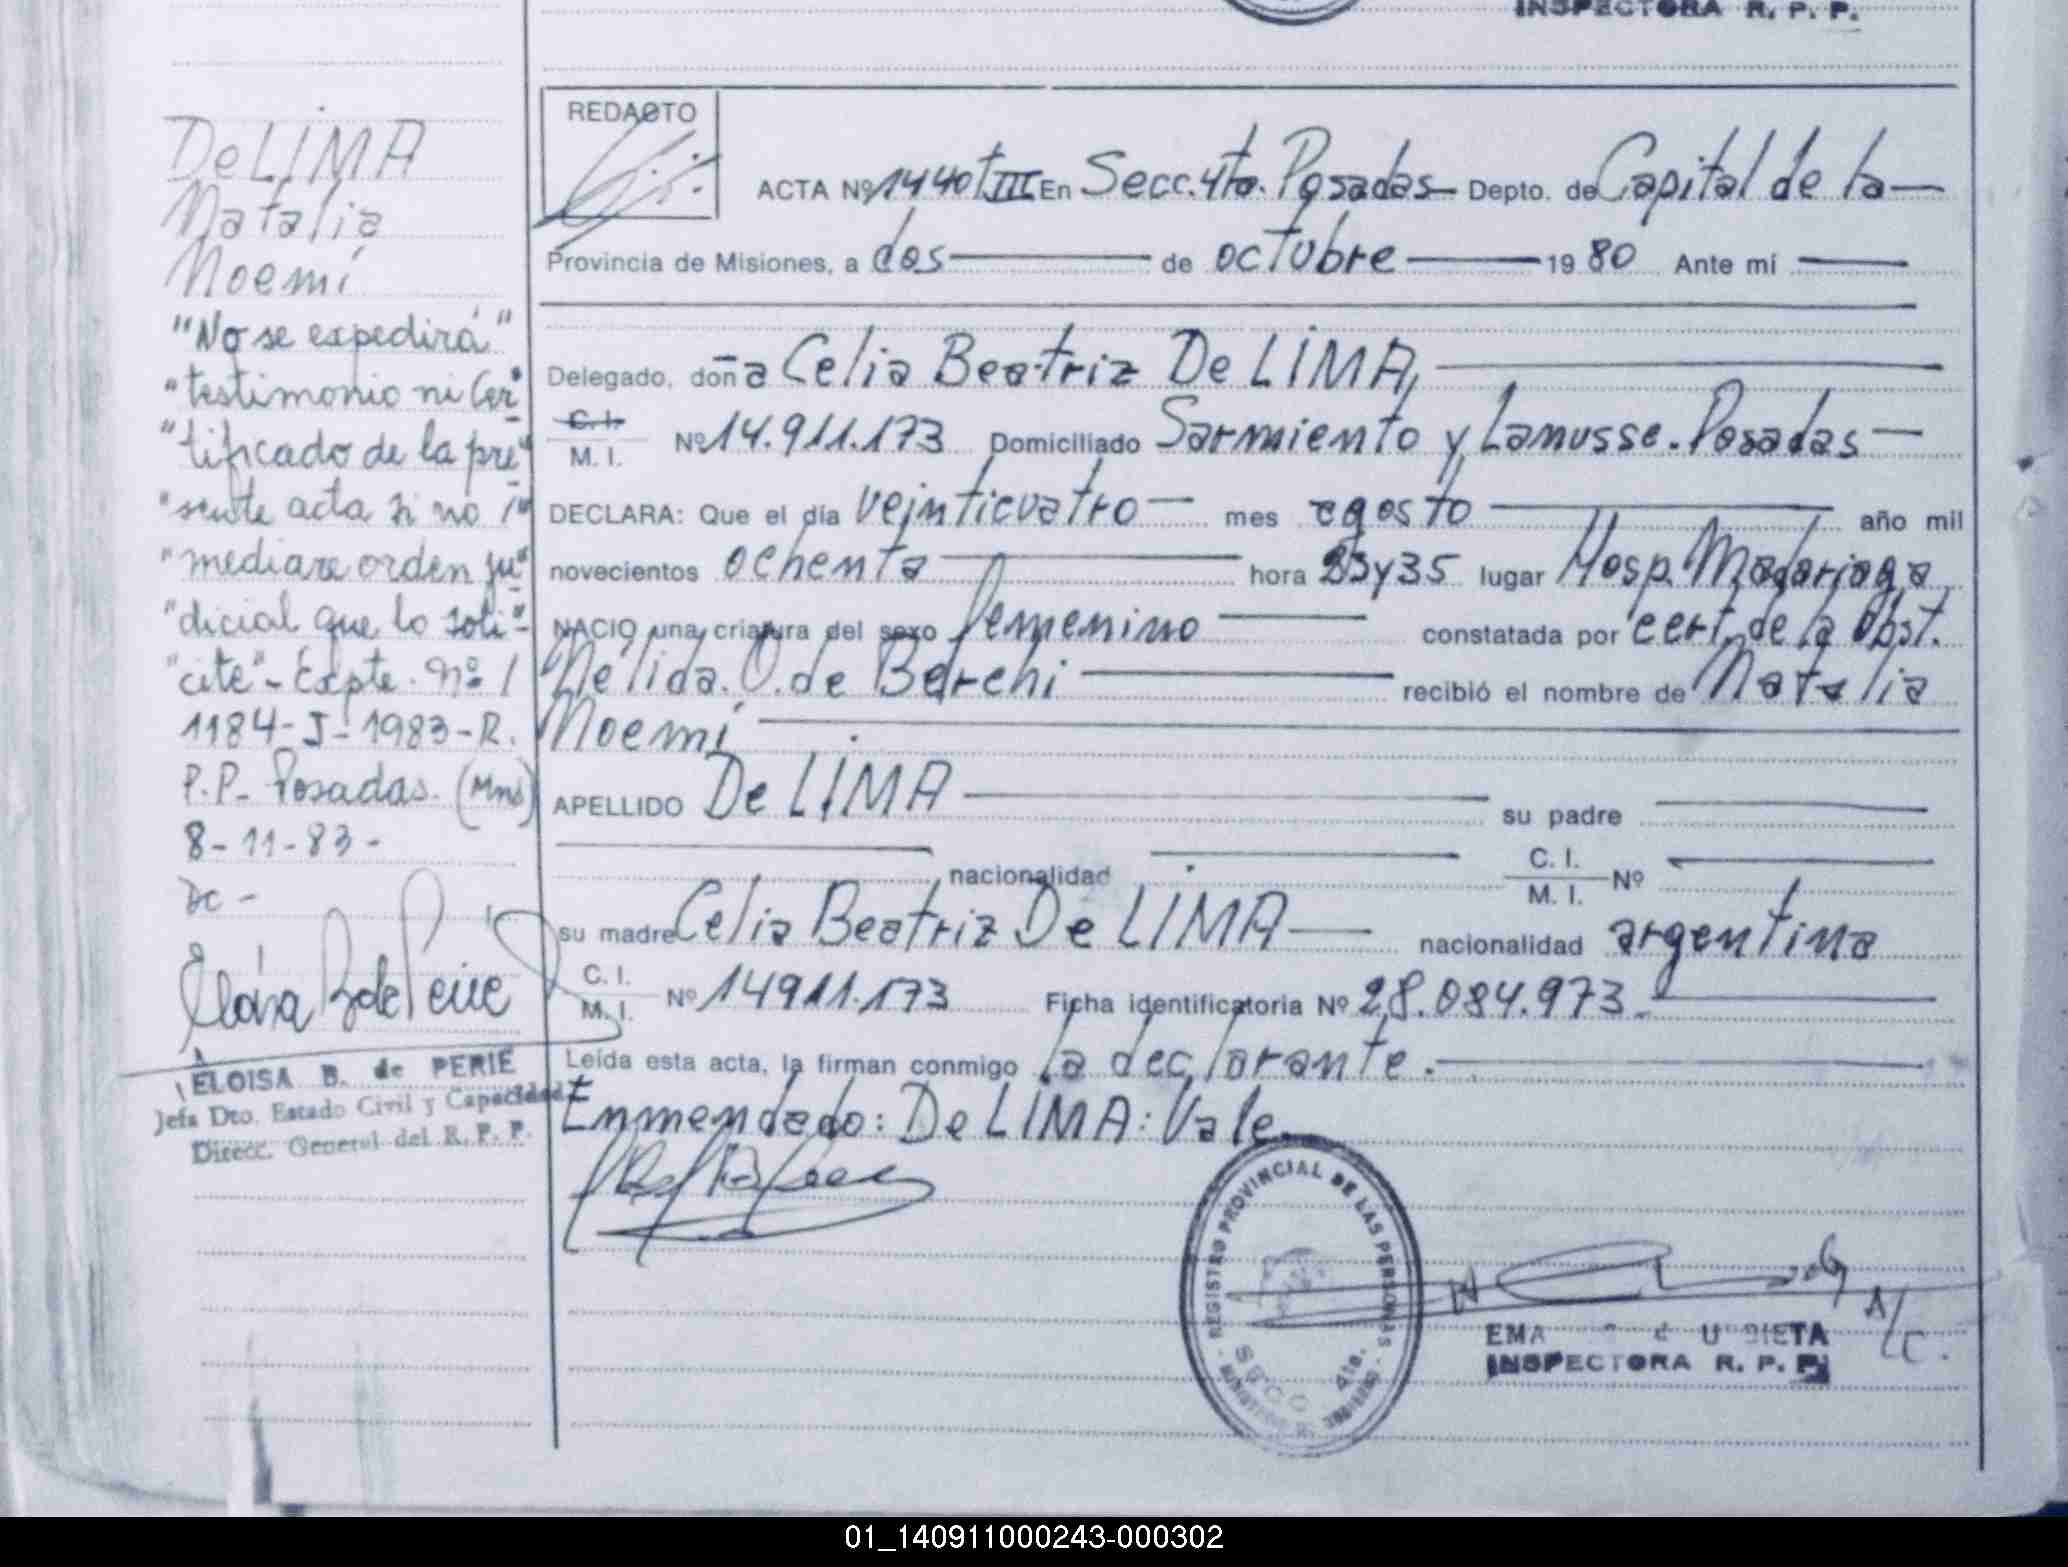 INSPECTORA R. P. P.
De LIMA
Natalia
Noemí
"No se expedirá"
"testimonio ni Cer"
"tificado de la pre"
"sente acta si no /"
"mediare orden ju"
"dicial que lo soli"-
"cite"- Expte. Nº /
1184-J-1983-R.
P.P- Posadas. (Mns)
8-11-83-
DC-
ELOISA B. de PERIE
Jefa Dto. Estado Civil y Capacidad
Direcc. General del R. P. P.
REDACTO
ACTA Nº 1440 T III En Secc. 4ta. Posadas Depto. de Capital de la
Provincia de Misiones, a dos de octubre 1980 Ante mí
Delegado, doña Celia Beatriz De LIMA,
C. I.
M. I. Nº 14.911.173 Domiciliado Sarmiento y Lanusse. Posadas
DECLARA: Que el día veinticuatro mes agosto año mil
novecientos ochenta hora 23y35 lugar Hosp. Madariaga
NACIO una criatura del sexo femenino constatada por cert. de la Obst.
Nélida. O. de Berchi recibió el nombre de Natalia
Noemí
APELLIDO De LIMA su padre
nacionalidad C. I.
M. I. Nº
su madre Celia Beatriz De LIMA nacionalidad argentina
C. I.
M. I. Nº 14911.173 Ficha identificatoria Nº 28.084.973.
Leída esta acta, la firman conmigo la declarante.
Enmendado: De LIMA: Vale.
REGISTRO PROVINCIAL DE LAS PERSONAS
SECC 4ta.
A/C.
INSPECTORA R. P. P.
01_140911000243-000302